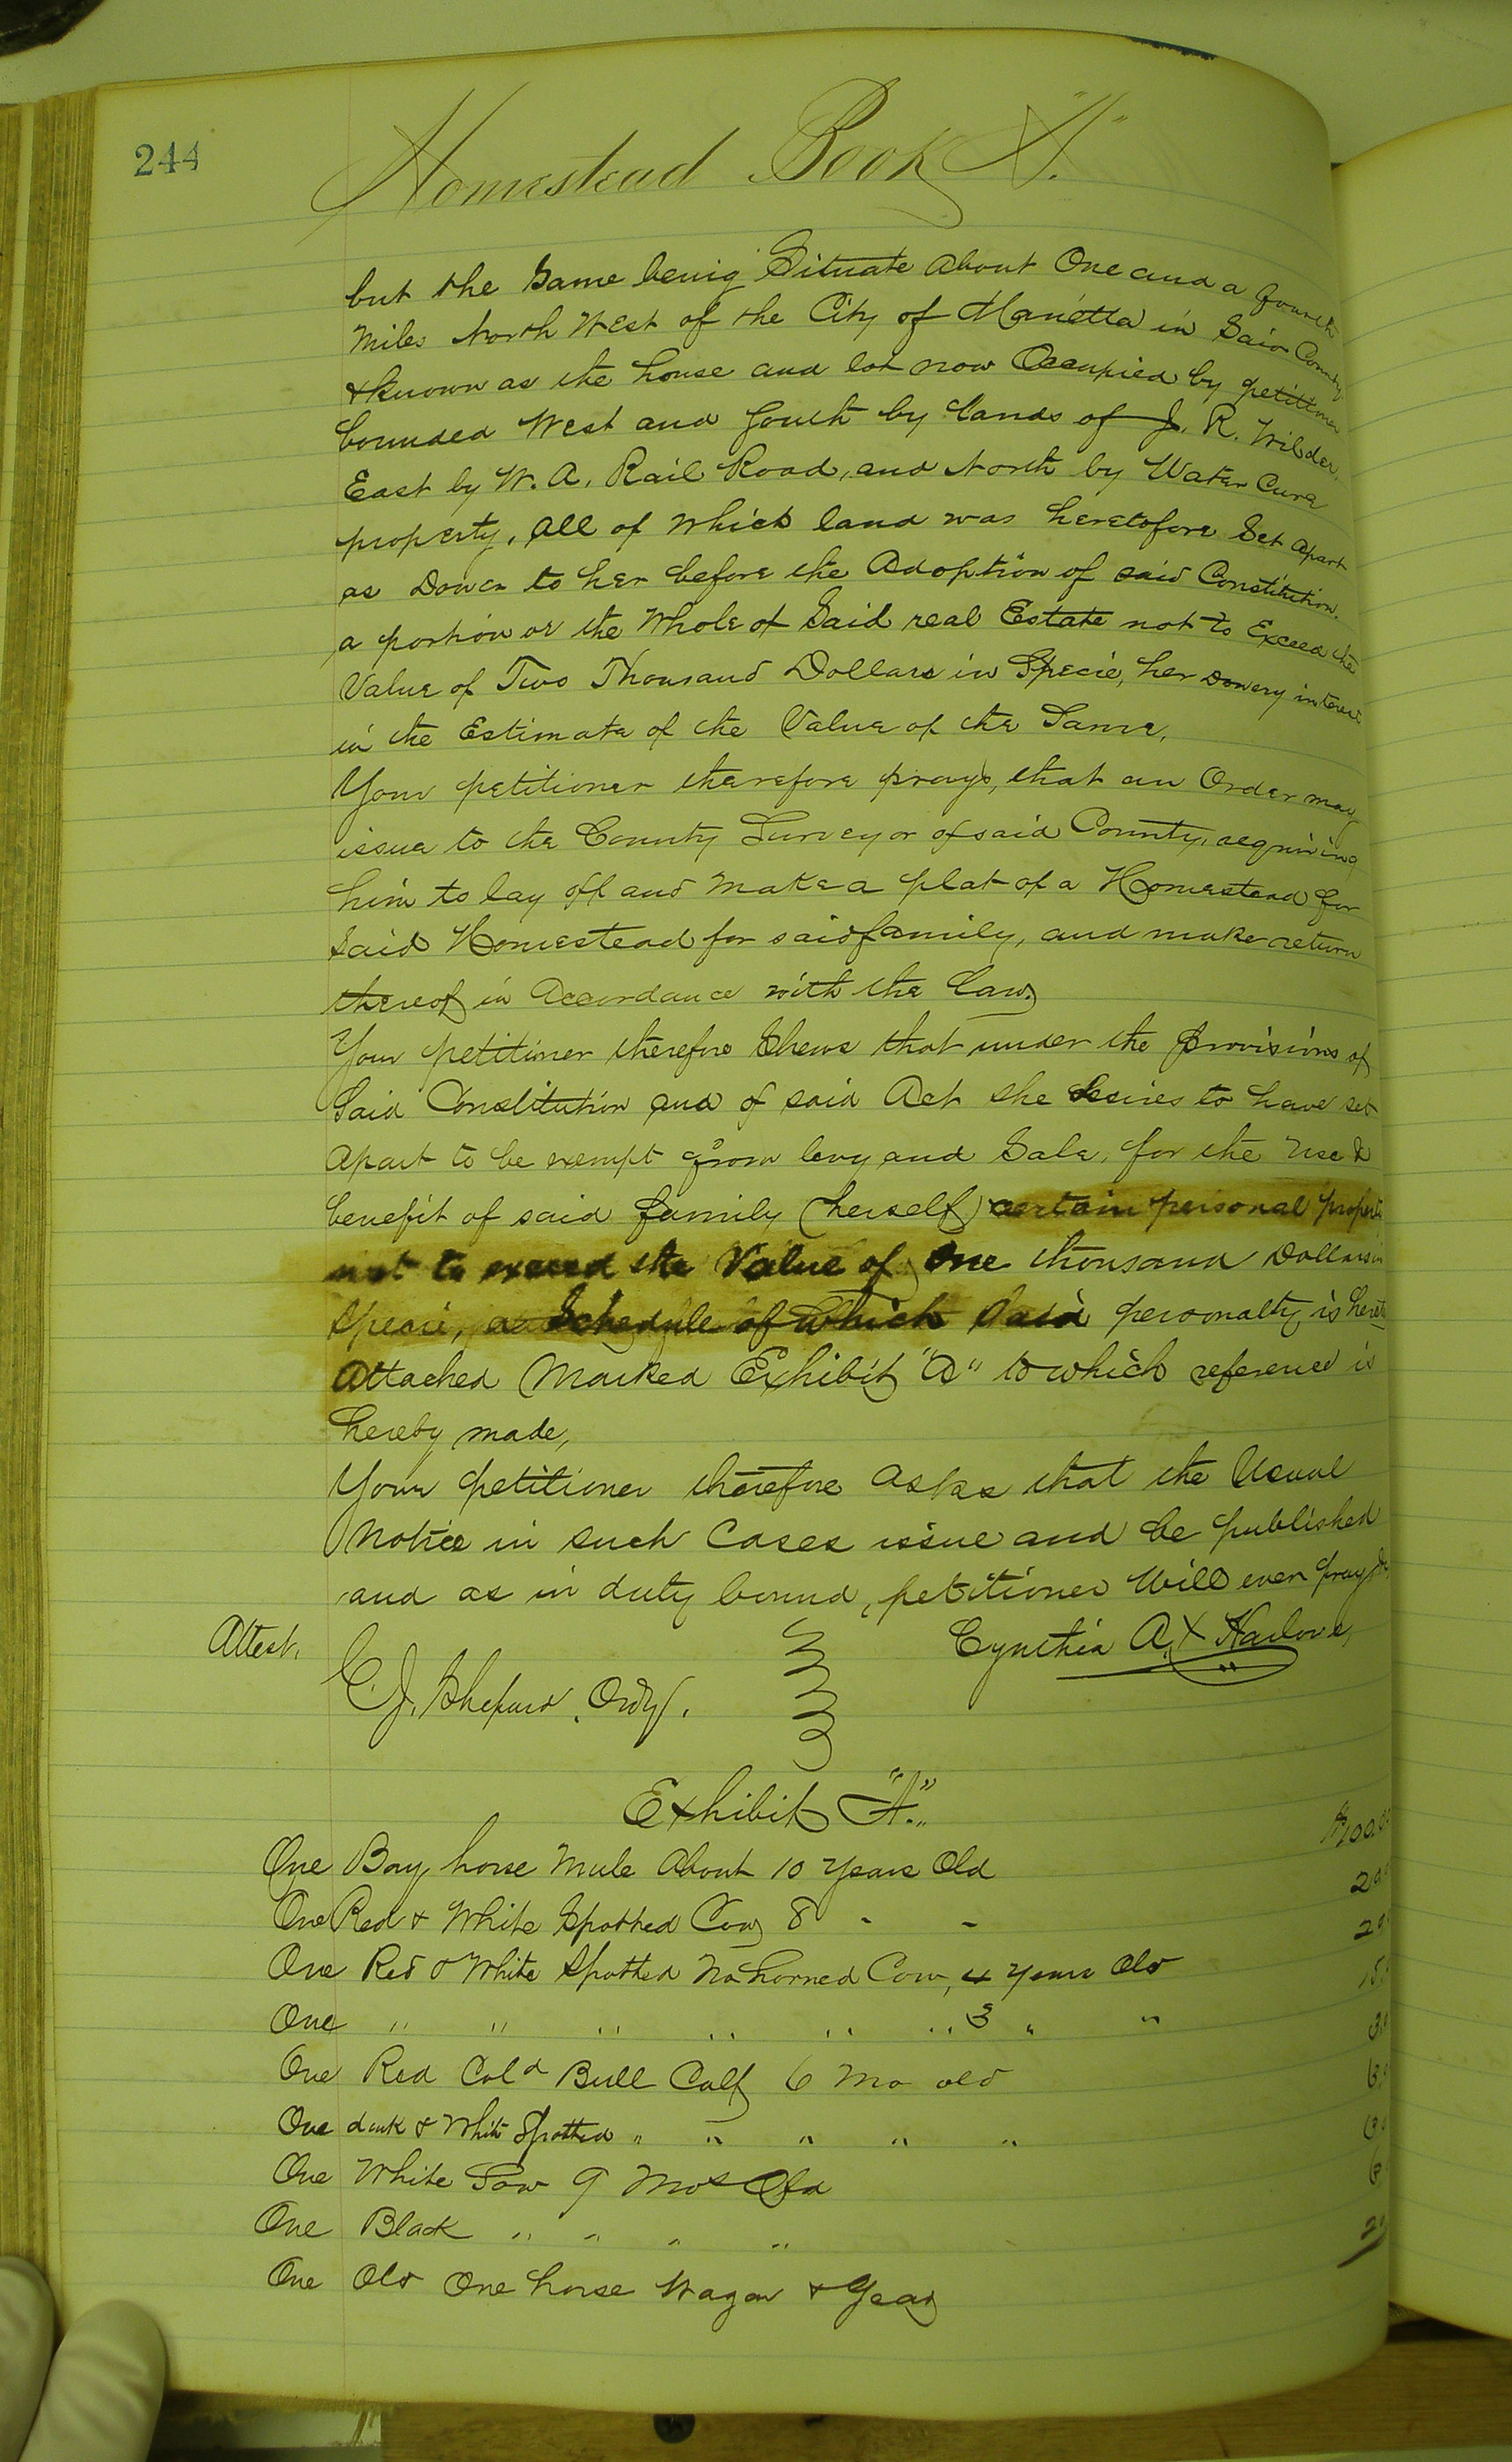 244
Homestead Book A.
but the Same being Situate About One and a fourth
Miles North West of the City of Marietta in Said County
& known as the house and lot now Occupied by petitioner
bounded West and South by lands of J. R. Wilder,
East by W. A. Rail Road, and North by Water Cure
property, All of which land was heretofore Set Apart
as Dower to her before the Adoption of said Constitution.
a portion or the Whole of Said real Estate not to Exceed the
Value of Two Thousand Dollars in Specie, her Dowery interest
in the Estimate of the Value of the Same.
Your petitioner therefore prays, that an Order may
issue to the County Surveyor of said County, requiring
him to lay off and make a plat of a Homestead for
Said Homestead for said family, and make return
thereof in Accordance with the Law.
Your petitioner therefore Shews that under the provisions of
Said Constitution and of said Act she desires to have set
Apart to be exempt from levy and Sale, for the use &
benefit of said family (herself) certain personal property
not to exceed the Value of One thousand Dollars in
Specie, a Schedule of which Said personalty, is hereto
Attached Marked Exhibit "A" to which reference is
hereby made,
Your petitioner therefore Asks that the Usual
Notice in such Cases issue and be published
and as in duty bound, petitioner Will ever pray &c.
Attest. Cynthia A. X
C. J. Shepard, Ordy.
Exhibit "A."
One Bay horse Mule About 10 Years Old $100.0
One Red & White Spotted Cow 8 " " 20
One Red & White Spotted No horned Cow, 4 Years Old 20
One " " " " " " 3 " " 15.
One Red Cold Bull Calf 6 Mo old 3.
One dark & White Spotted " " " " " 3.
One White Sow 9 Mos Old
One Black " " " "
One Old One horse Wagon & Gear 20